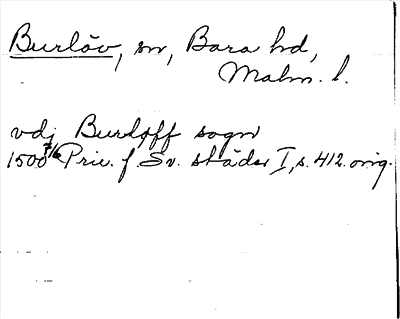 Burlöv, sn, Bara hd,
Malm. l.
vdj Burløff sogn
1500 5/6 Priv. f Sv. städer I, s. 412. orig.